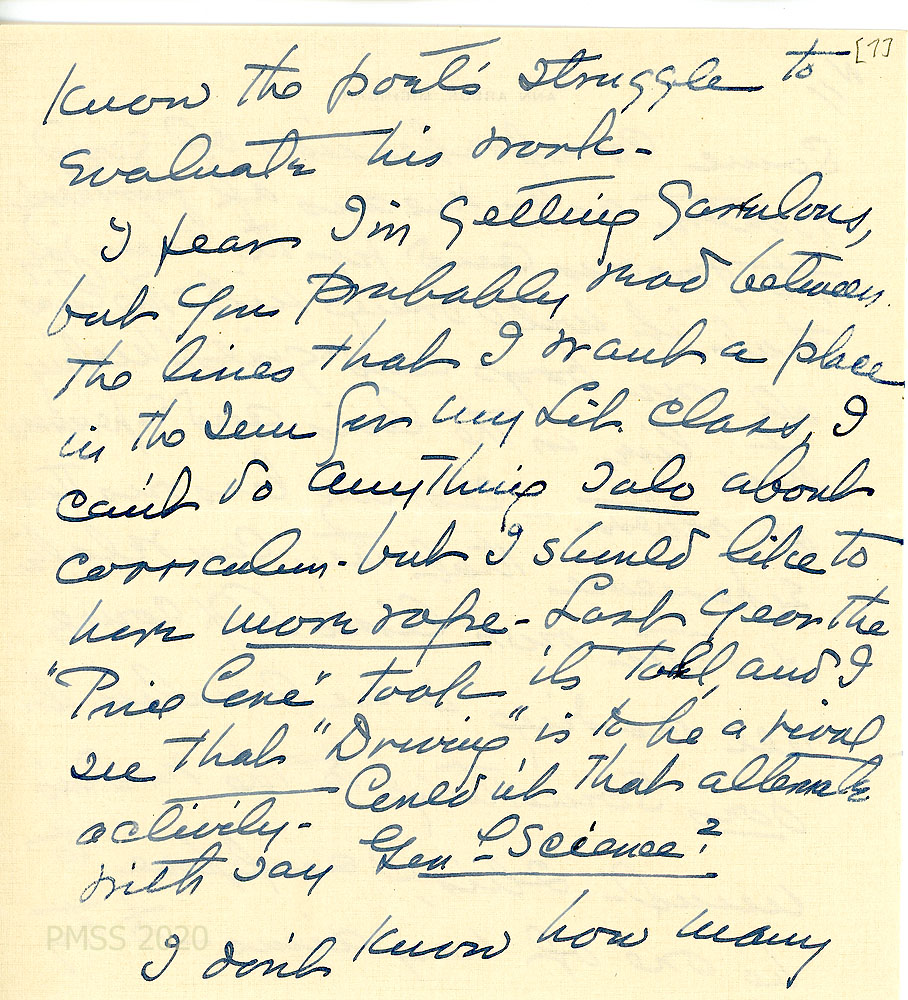 [7]
know the poet's struggle to
evaluate his work -
I fear I'm getting garrulous,
but you probably read between
the lines that I want a place
in the sun for my Lit. class, I
can't do anything solo about
corriculum - but I should like to
here more rope - Last year the
"Pine Cone" took its toll, and I
see that "Driving" is to be a rival
activity - Could it that alternate
with say Gen'l Science?
I don't know how many
PMSS 2020